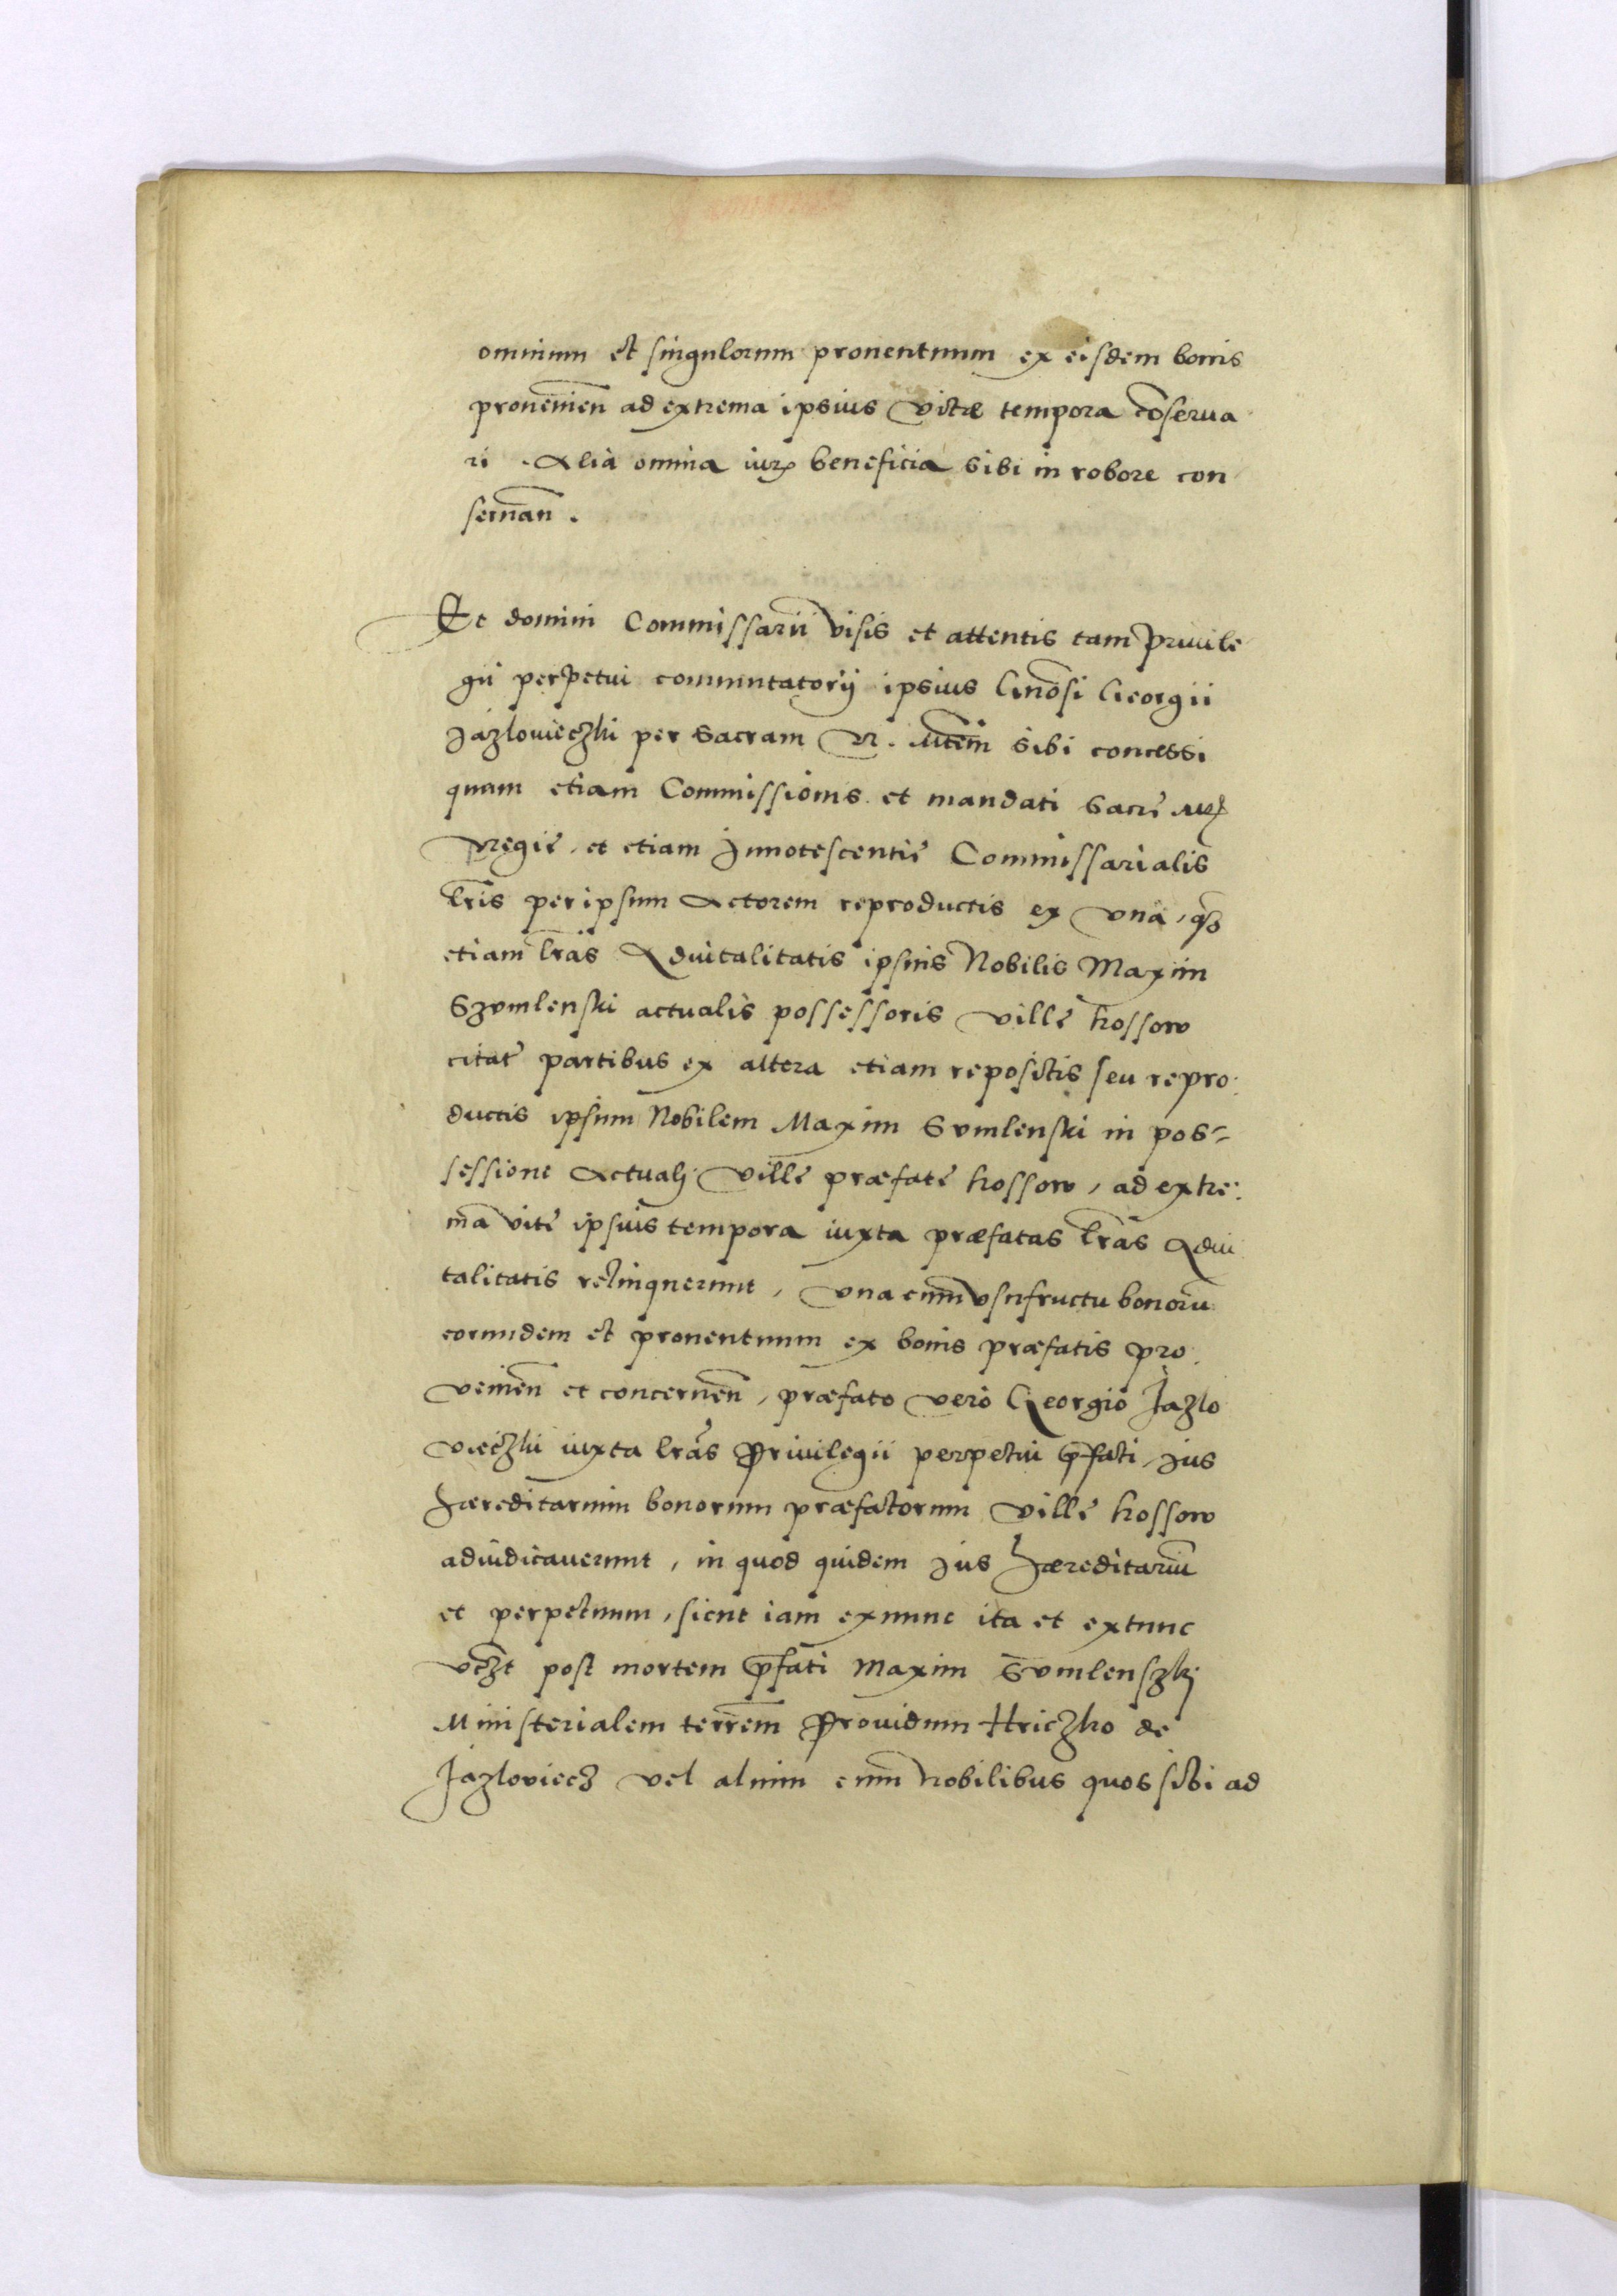 omnium et singulorum prouentuum ex eisdem bonis
prouenien̄ ad extrema ipsius vitæ tempora cōserua
ri . Alia omnia iur beneficia sibi in robore con
seruan̄ .
Et domini Commissarii visis et attentis tam Priuile
gii perpetui commutatorij ipsius Gnōsi Georgii
Jazlovieczki per Sacram R. Mtem̄ sibi concessi
quam etiam Commissionis et mandati Sacrę Mtis
Regię , et etiam Innotescentię Commissarialis
lr̄is per ipsum Actorem reproductis ex vna , qz
etiam lr̄as Aduitalitatis ipsius Nobilis Maxim
Szvmlenski actualis possessoris villę kossow
citatę partibus ex altera etiam repositis seu repro:
ductis ipsum Nobilem Maxim Svmlenski in pos=
sessione Actuali villę præfatę kossow , ad extre:
ma vitę ipsius tempora iuxta præfatas lr̄as Adui
talitatis relinquerunt , vna cum vsufructu bonorū
eorundem et prouentuum ex bonis præfatis pro:
venien̄ et concernen̄ , præfato vero Georgio Jazlo
vieczki iuxta lr̄as Priuilegii perpetui p̄fati , Jus
hæreditarium bonorum præfatorum villę kossow
adiudicauerunt , in quod quidem Jus hæreditariū
et perpetuum , sicut iam exnunc ita et extunc
vczt post mortem p̄fati Maxim Svmlenszkj
Ministerialem terrem̄ Prouidum Hriczko de
Jazloviecz vel alium cum nobilibus quos sibi ad